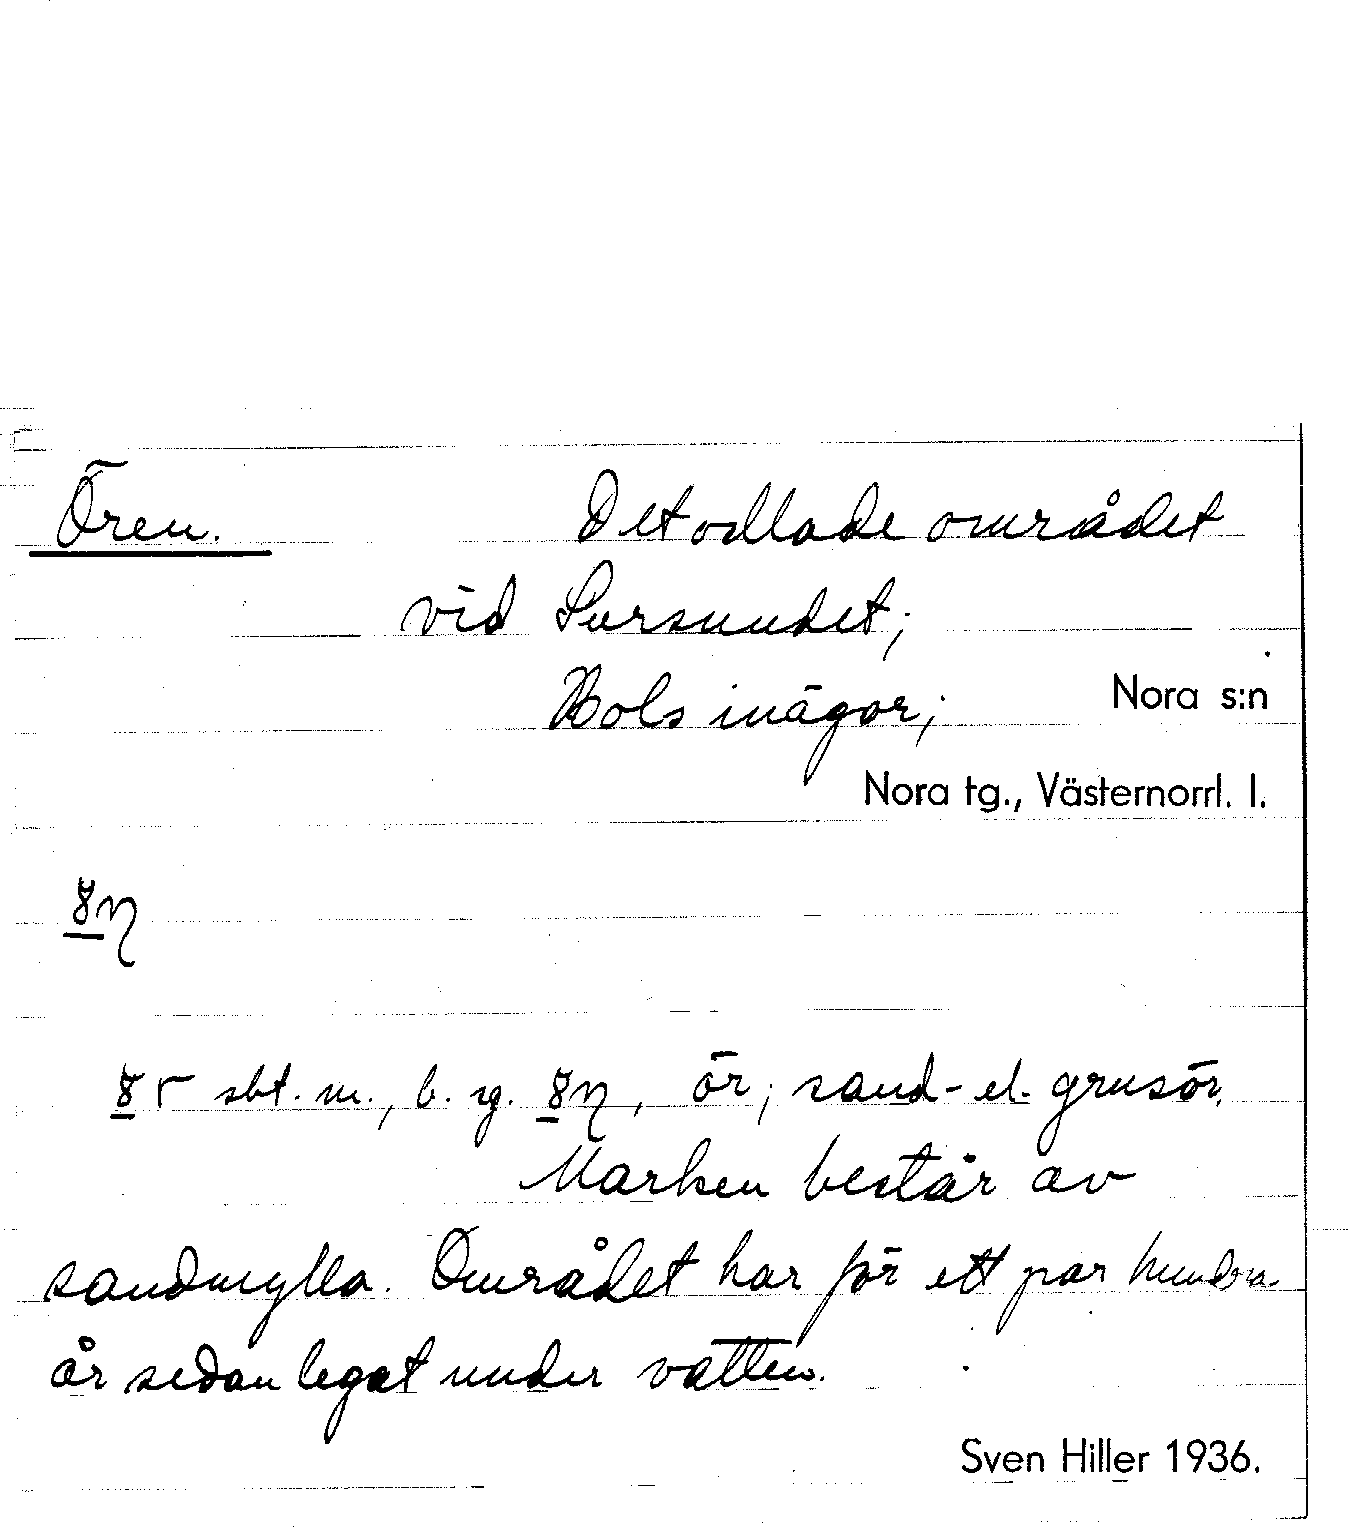 Ören. Det odlade området
vid Sursundet;
Hols inägor; Nora s:n
Nora tg., Västernorrl. l.
sbt. m., b. sg. , ör; sand- el. grusör.
Marken består av
sandmylla. Området har för ett par hundra
år sedan legat under vatten.
Sven Hiller 1936.